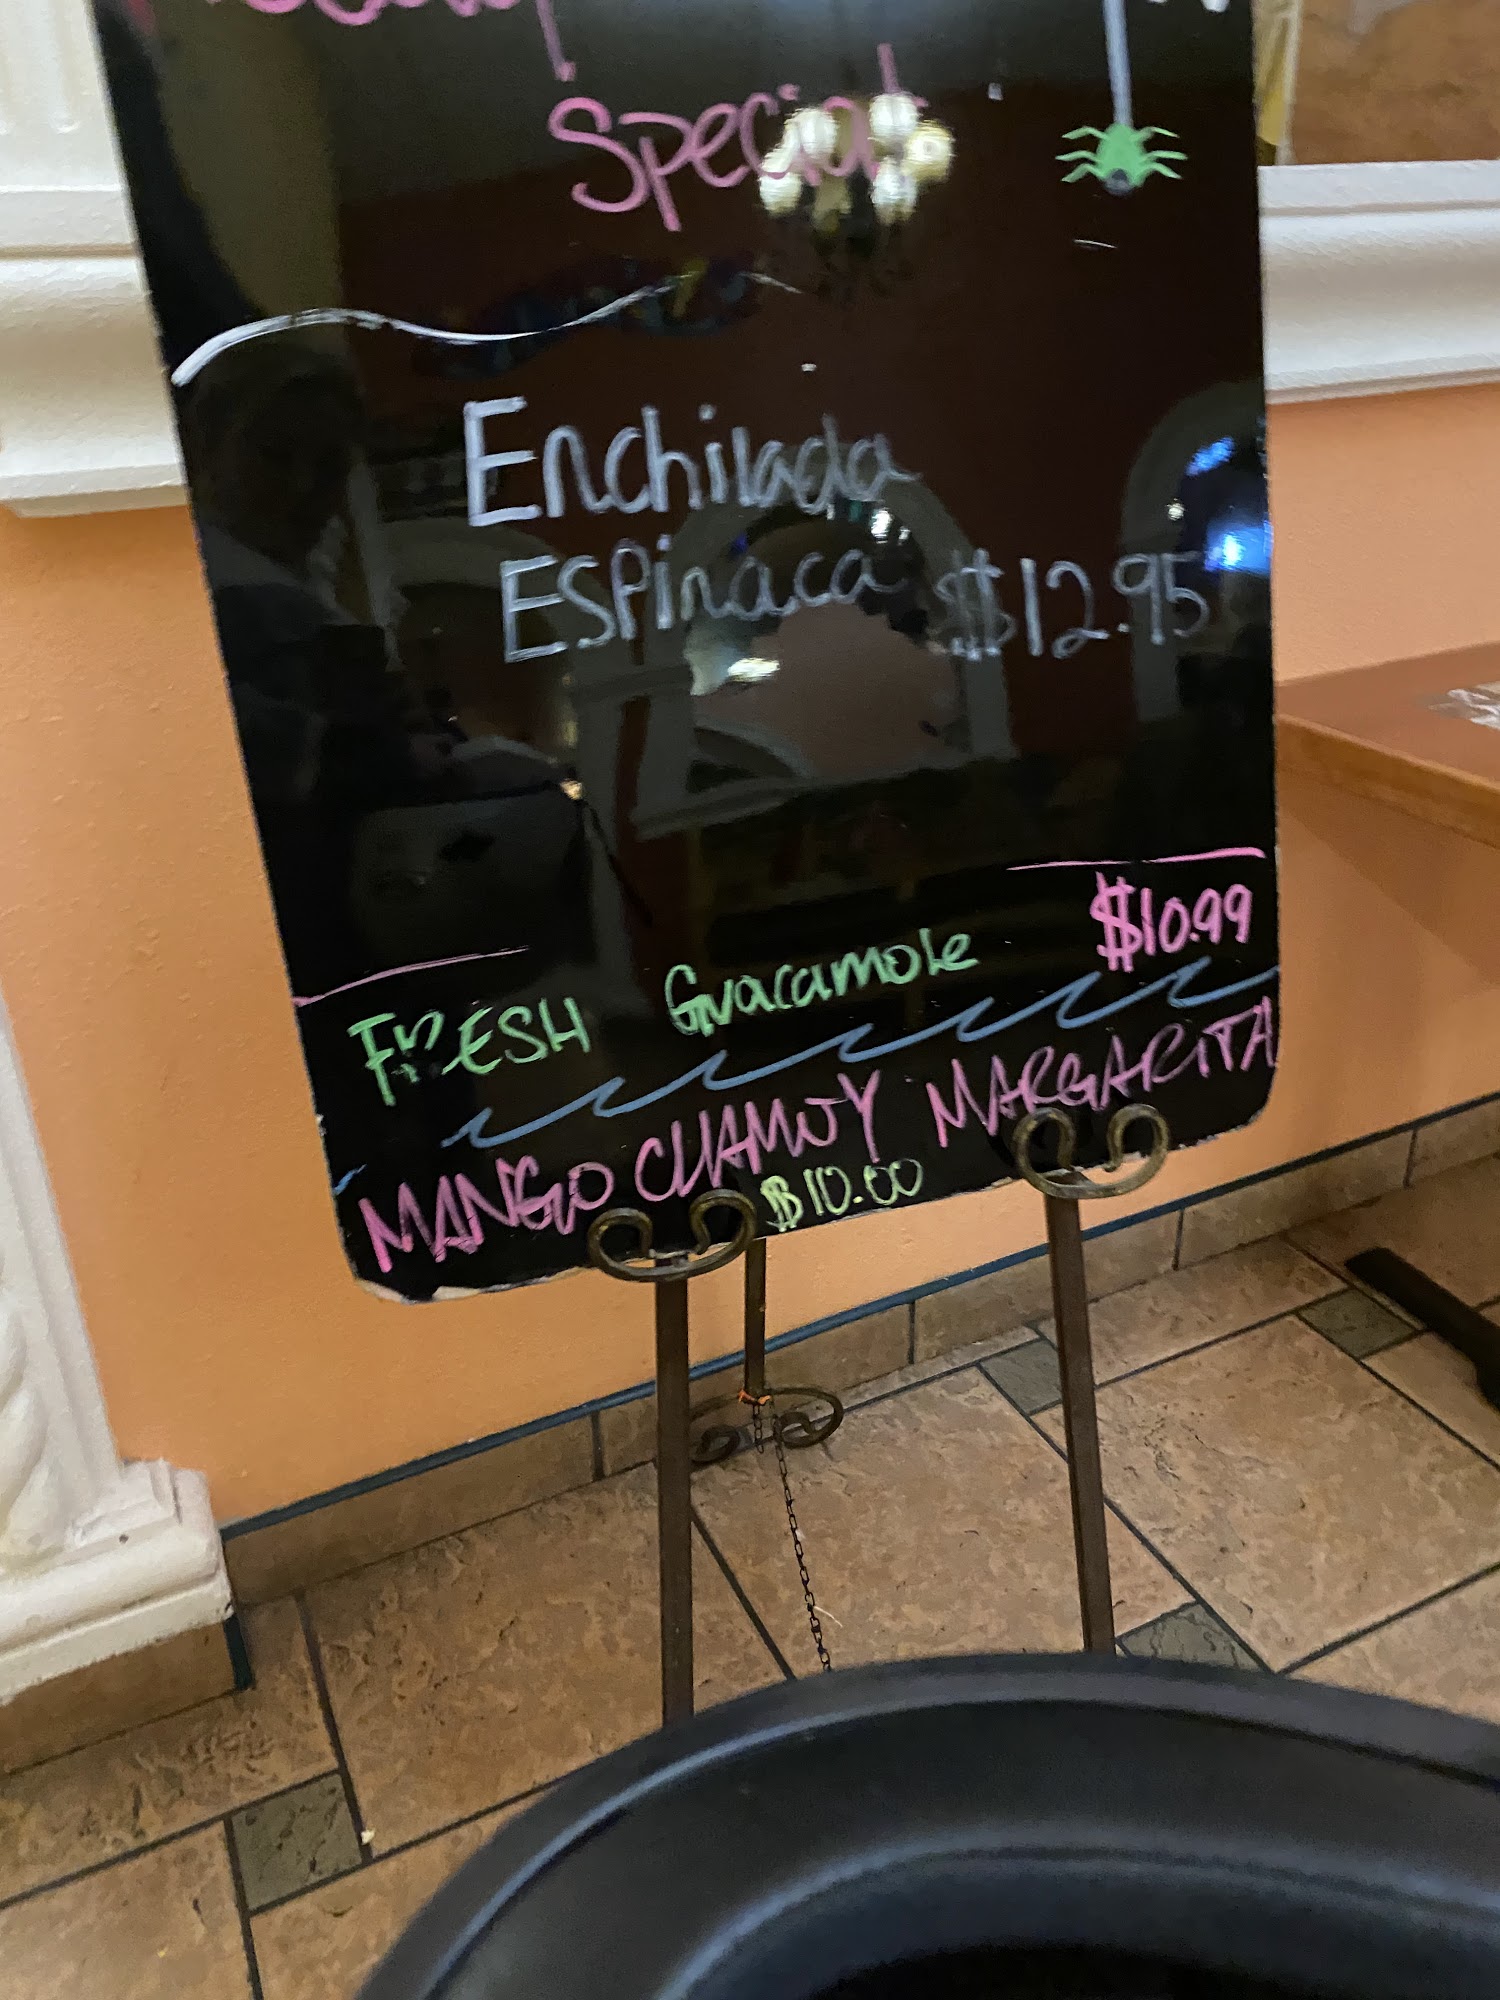 Special
Enchilada
ESPinaca $12.95
FRESH Guacamole $10.99
MANGO CHAMOY MARGARITA
$10.00